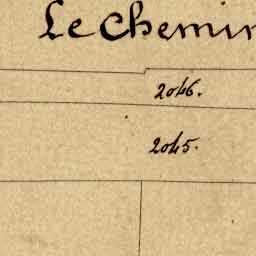 Le Chemin
2046.
2045.